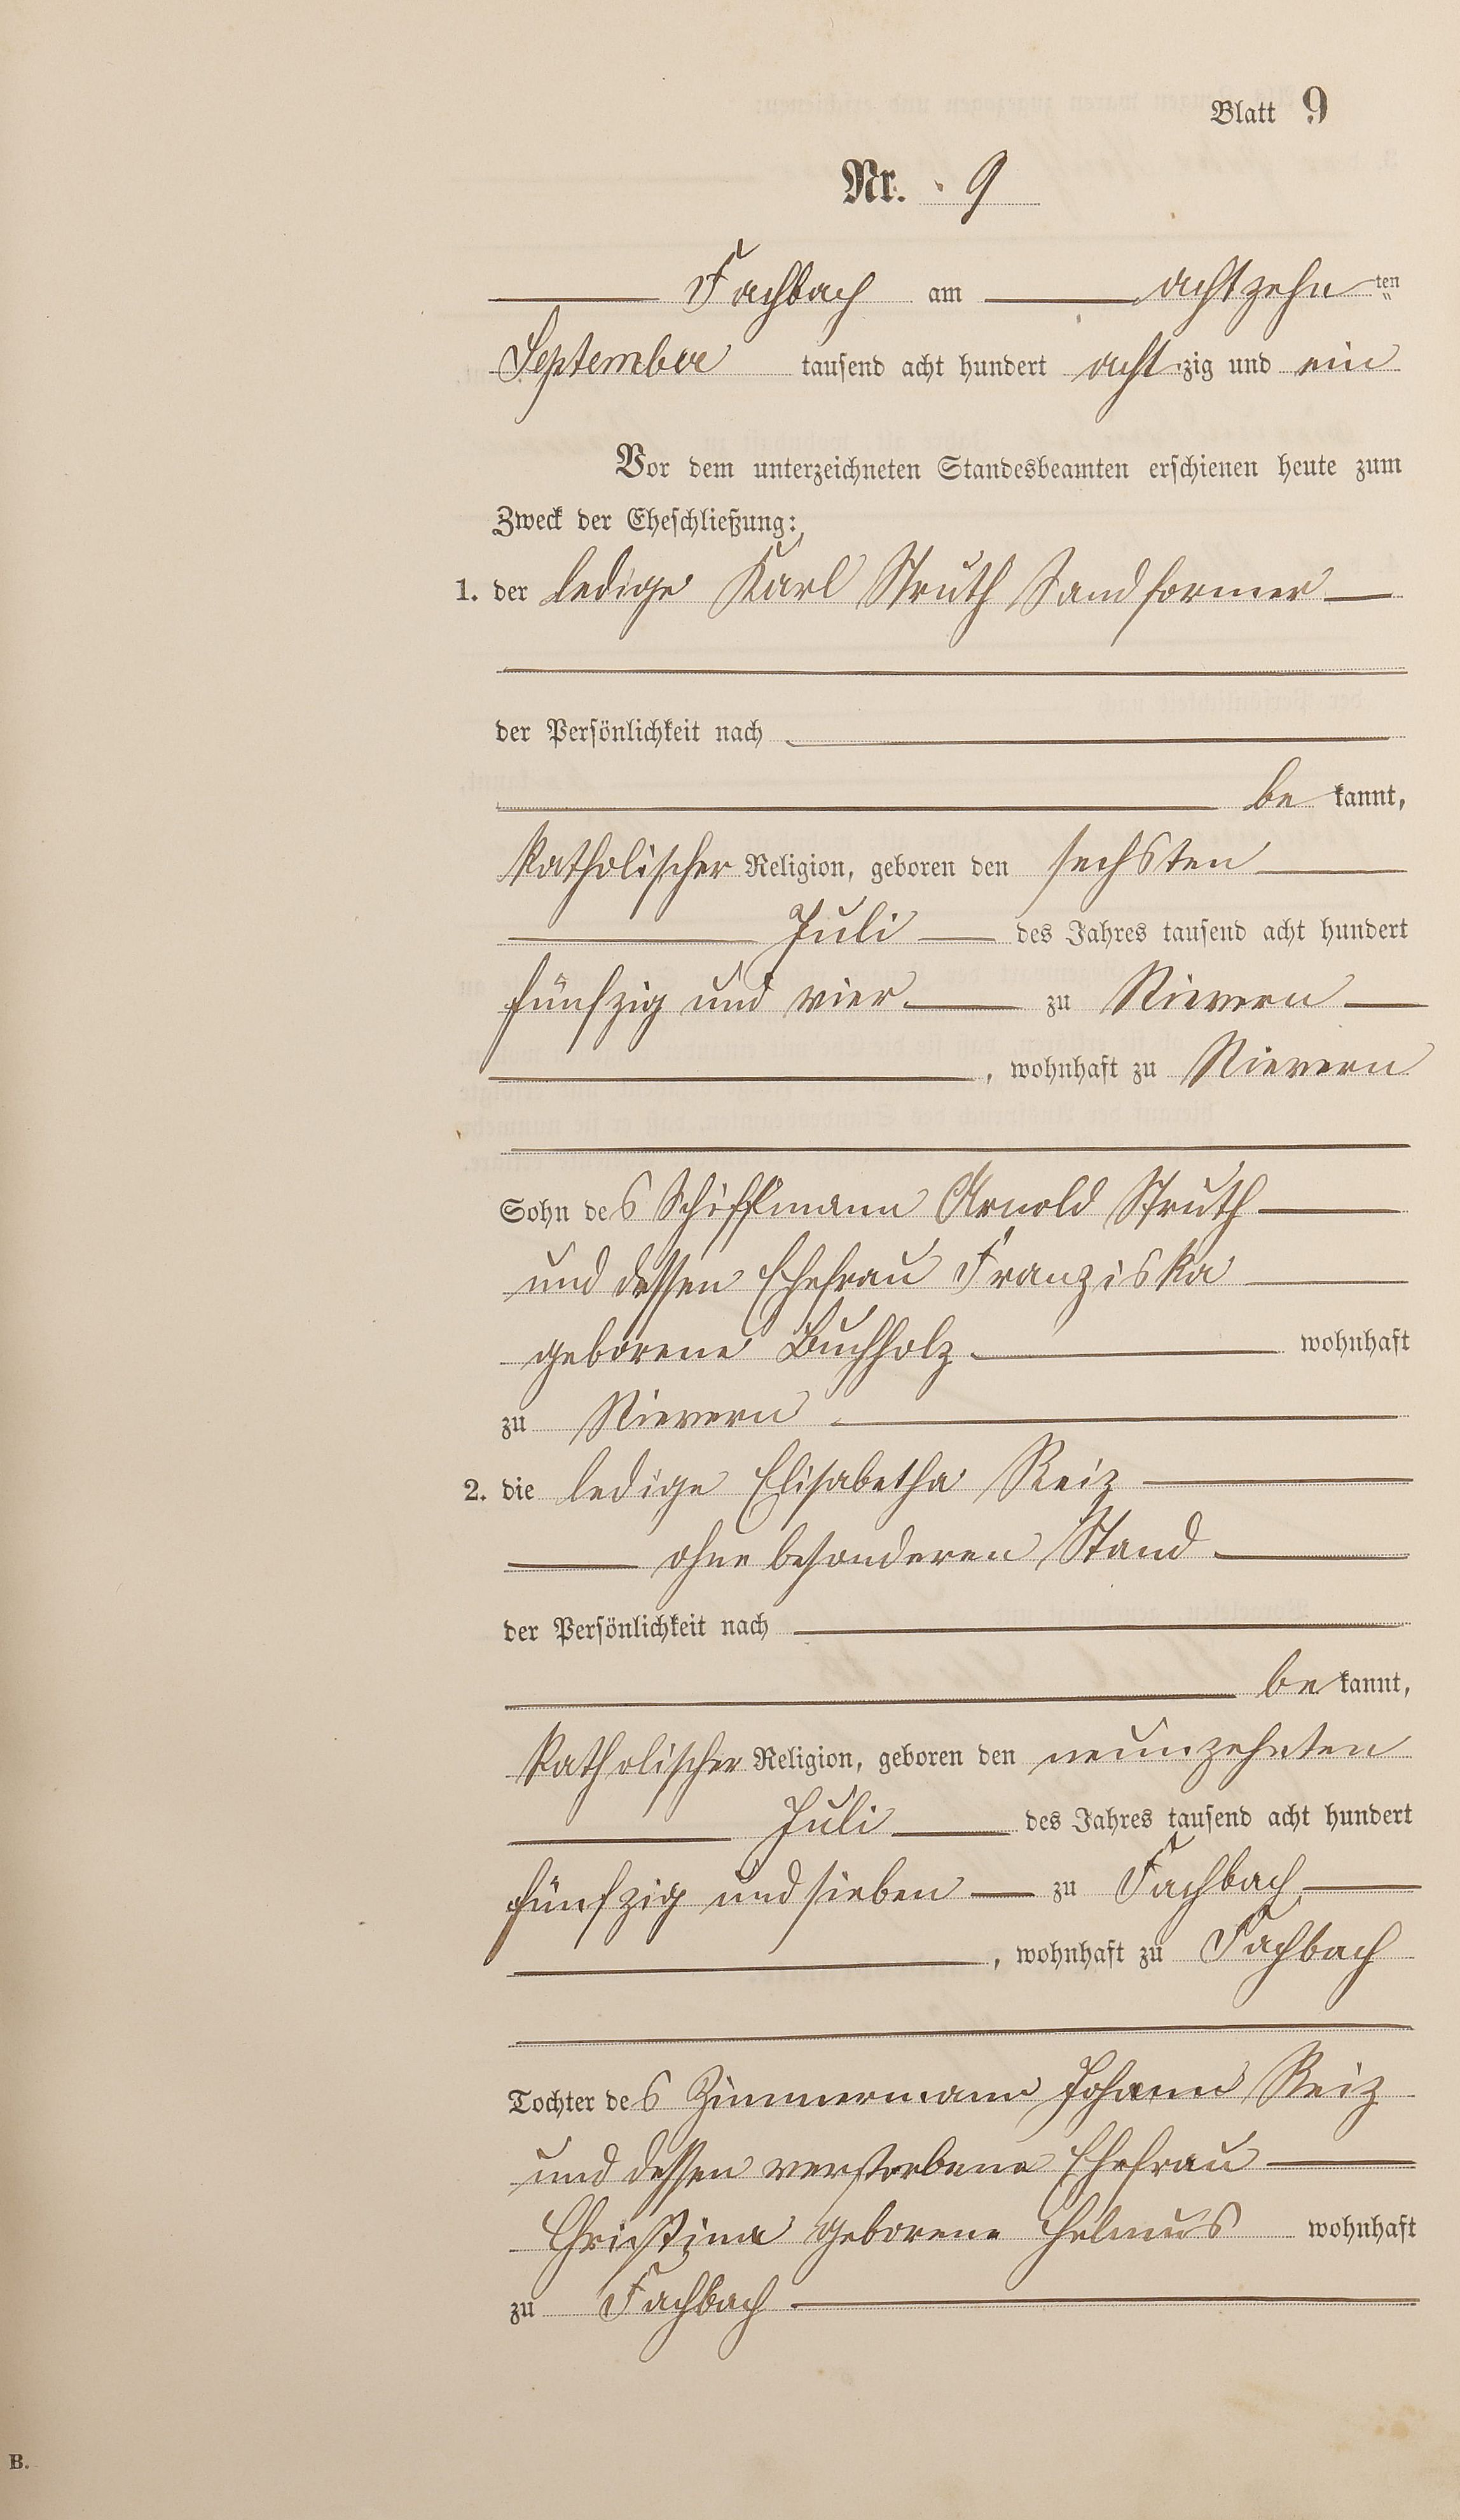 Blatt 9
Nr. 9
Fachbach am achtzehn ten
September tausend acht hundert acht zig und ein
Vor dem unterzeichneten Standesbeamten erschienen heute zum
Zweck der Eheschließung:
1. der ledige Karl Struth Sandformer
der Persönlichkeit nach
be kannt,
katholischer Religion, geboren den sechsten
Juli des Jahres tausend acht hundert
fünfzig und vier zu Nievern
, wohnhaft zu Nievern
Sohn des Schiffmann Arnold Struth
und dessen Ehefrau Franziska
geborene Buchholz wohnhaft
zu Nievern
2. die ledige Elisabetha Reiz
ohne besonderen Stand
der Persönlichkeit nach
be kannt,
katholischer Religion, geboren den neunzehnten
Juli des Jahres tausend acht hundert
fünfzig und sieben zu Fachbach
, wohnhaft zu Fachbach
Tochter des Zimmermann Johann Reiz
und dessen verstorbene Ehefrau
Christina geborene Helmus wohnhaft
zu Fachbach
B.